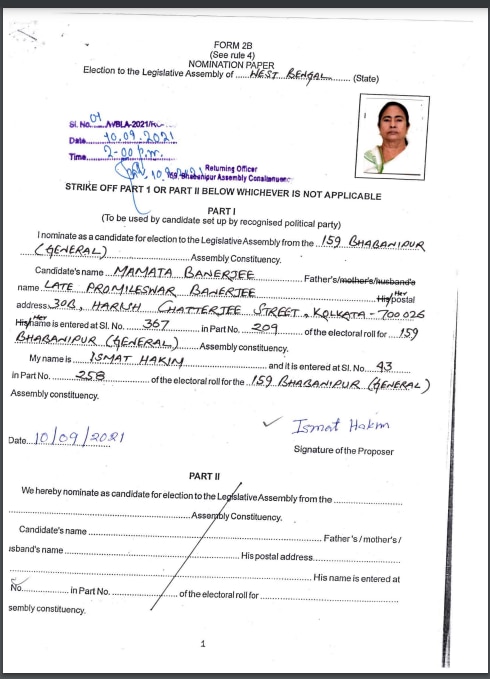 FORM 2B
(See rule 4)
NOMINATION PAPER
Election to the Legislative Assembly of ......WEST BENGAL......... (State)
Sl. No. 01 AVBLA-2021/RO-
Date 10.09.2021
Time 2-00 p.m.
10.9.2021 Returning Officer
159, Bhabanipur Assembly Constituency
STRIKE OFF PART 1 OR PART II BELOW WHICHEVER IS NOT APPLICABLE
PART I
(To be used by candidate set up by recognised political party)
I nominate as a candidate for election to the Legislative Assembly from the ..159 BHABANIPUR
(GENERAL) Assembly Constituency.
Candidate's name ... MAMATA BANERJEE Father's/mother's/husband's
name LATE PROMILESWAR BANERJEE His Her postal
address 30B, HARISH CHATTERJEE STREET, KOLKATA-700026
His Her name is entered at Sl. No. 367 in Part No. 209 of the electoral roll for 159
BHABANIPUR (GENERAL) Assembly constituency.
My name is ISMAT HAKIM and it is entered at Sl. No. 43
in Part No. 258 of the electoral roll for the 159 BHABANIPUR (GENERAL)
Assembly constituency.
Ismat Hakim
Date 10/09/2021
Signature of the Proposer
PART II
We hereby nominate as candidate for election to the Legislative Assembly from the
Assembly Constituency.
Candidate's name Father's / mother's /
usband's name His postal address
His name is entered at
No. in Part No. of the electoral roll for
sembly constituency.
1